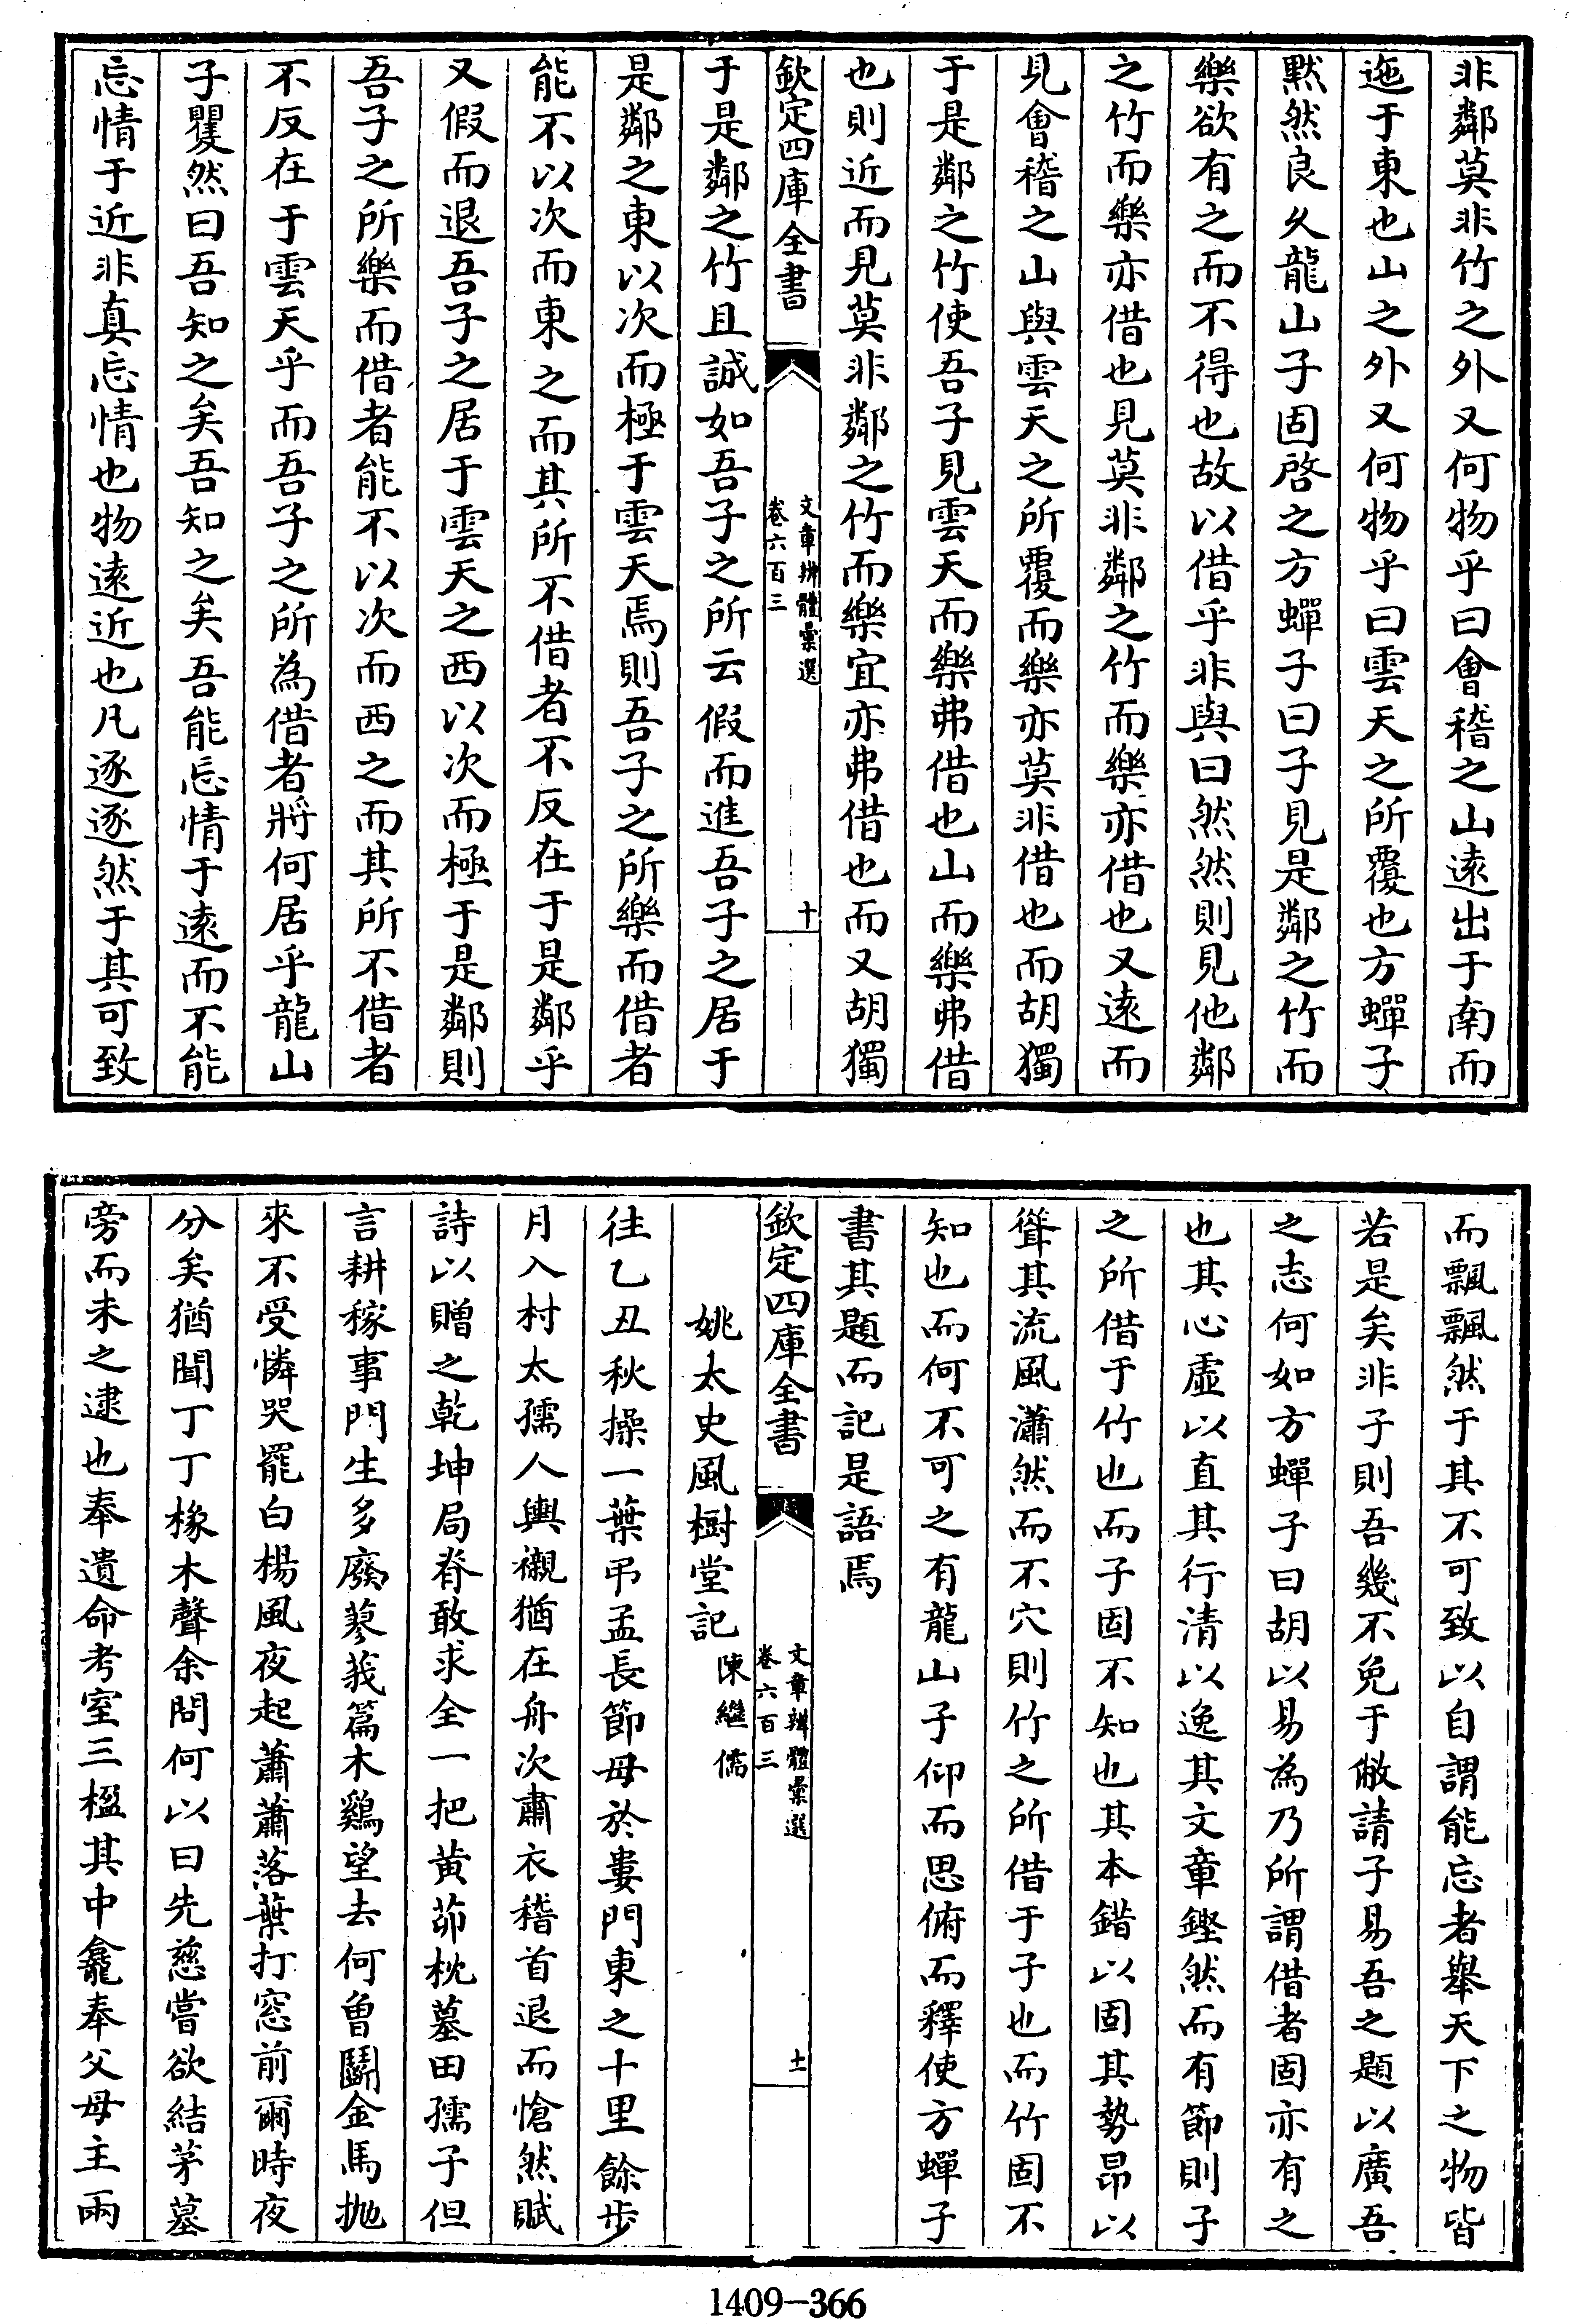 非鄰莫非竹之外又何物乎曰會稽之山遠出于南而
迤于東也山之外又何物乎曰雲天之所覆也方蟬子
默然良久龍山子固啓之方蟬子曰子見是鄰之竹而
樂欲有之而不得也故以借乎非與曰然然則見他鄰
之竹而樂亦借也見莫非鄰之竹而樂亦借也又遠而
見會稽之山與雲天之所覆而樂亦莫非借也而胡獨
于是鄰之竹使吾子見雲天而樂弗借也山而樂弗借
也則近而見莫非鄰之竹而樂宜亦弗借也而又胡獨
欽定四庫全書
文章辨體彙選
卷六百三
十
于是鄰之竹且誠如吾子之所云假而進吾子之居于
是鄰之東以次而極于雲天焉則吾子之所樂而借者
能不以次而東之而其所不借者不反在于是鄰乎
又假而退吾子之居于雲天之西以次而極于是鄰則
吾子之所樂而借者能不以次而西之而其所不借者
不反在于雲天乎而吾子之所為借者將何居乎龍山
子矍然曰吾知之矣吾知之矣吾能忘情于遠而不能
忘情于近非真忘情也物遠近也凡逐逐然于其可致
而飄飄然于其不可致以自謂能忘者舉天下之物皆
若是矣非子則吾幾不免于敝請子易吾之題以廣吾
之志何如方蟬子曰胡以易為乃所謂借者固亦有之
也其心虛以直其行清以逸其文章鏗然而有節則子
之所借于竹也而子固不知也其本錯以固其勢昂以
聳其流風瀟然而不穴則竹之所借于子也而竹固不
知也而何不可之有龍山子仰而思俯而釋使方蟬子
書其題而記是語焉
欽定四庫全書
文章辨體彙選
卷六百三
十一
姚太史風樹堂記
陳繼儒
往乙丑秋操一葉弔孟長節母於婁門東之十里餘步
月入村太孺人輿襯猶在舟次肅衣稽首退而愴然賦
詩以贈之乾坤局脊敢求全一把黃茆枕墓田孺子但
言耕稼事門生多廢蓼莪篇木鷄望去何曾鬭金馬拋
來不受憐哭罷白楊風夜起蕭蕭落葉打窓前爾時夜
分矣猶聞丁丁椓木聲余問何以曰先慈嘗欲結茅墓
旁而未之逮也奉遺命考室三楹其中龕奉父母主兩
1409-366